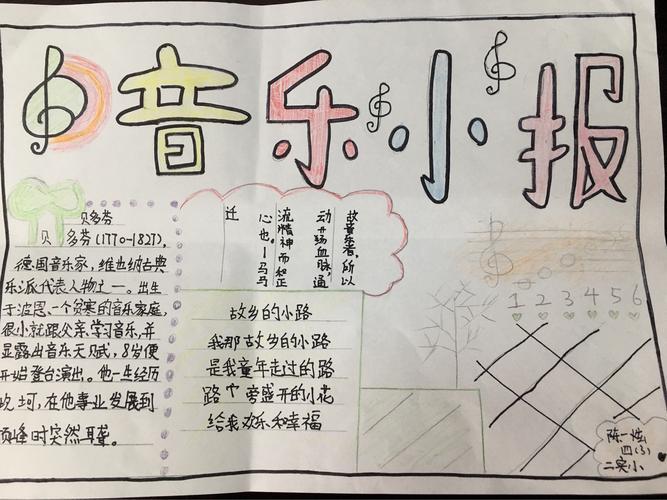 音乐小报
贝多芬
贝多芬(1770-1827),
德国音乐家,维也纳古典
乐派代表人物之一。出生
于波恩,一个贫寒的音乐家庭,
很小就跟父亲学习音乐,并
显露出音乐天赋,8岁便
开始登台演出。他一生经历
坎坷,在他事业发展到
顶峰时突然耳聋。
故音乐者,所以
动开扬血脉,通
流精神而和正
心也。—司马
迁
故乡的小路
我那故乡的小路
是我童年走过的路
路个旁盛开的小花
给我欢乐和幸福
1 2 3 4 5 6
陈一
四(3)
二实小